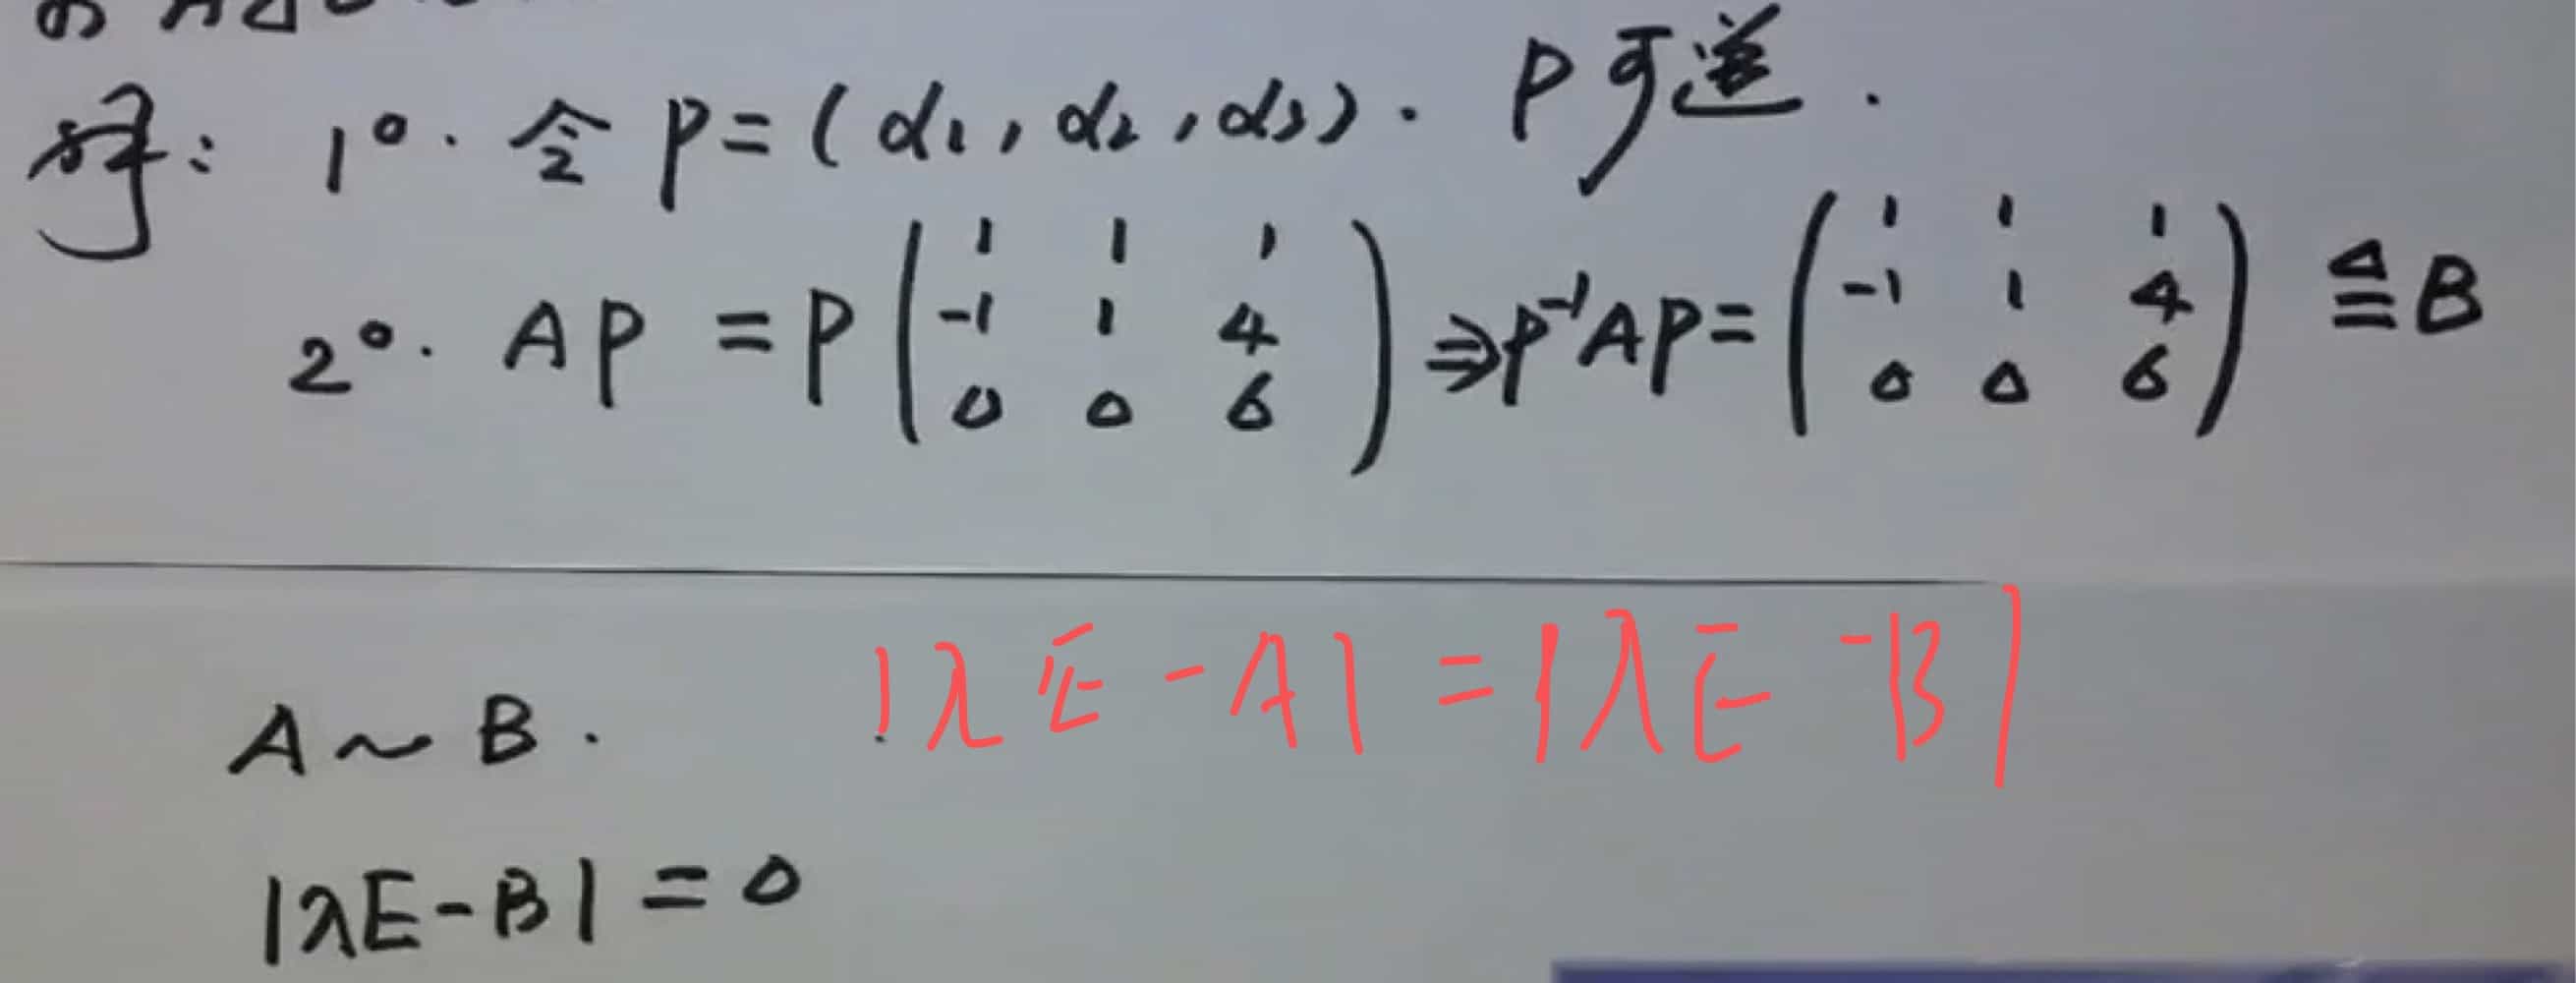 解: 1°. 令 P=(α₁, α₂, α₃). P可逆.
2°. AP = P
1 1 1
-1 1 4
0 0 6
⇒ P⁻¹AP =
1 1 1
-1 1 4
0 0 6
≜ B
A ~ B. |λE-A| = |λE-B|
|λE-B| = 0